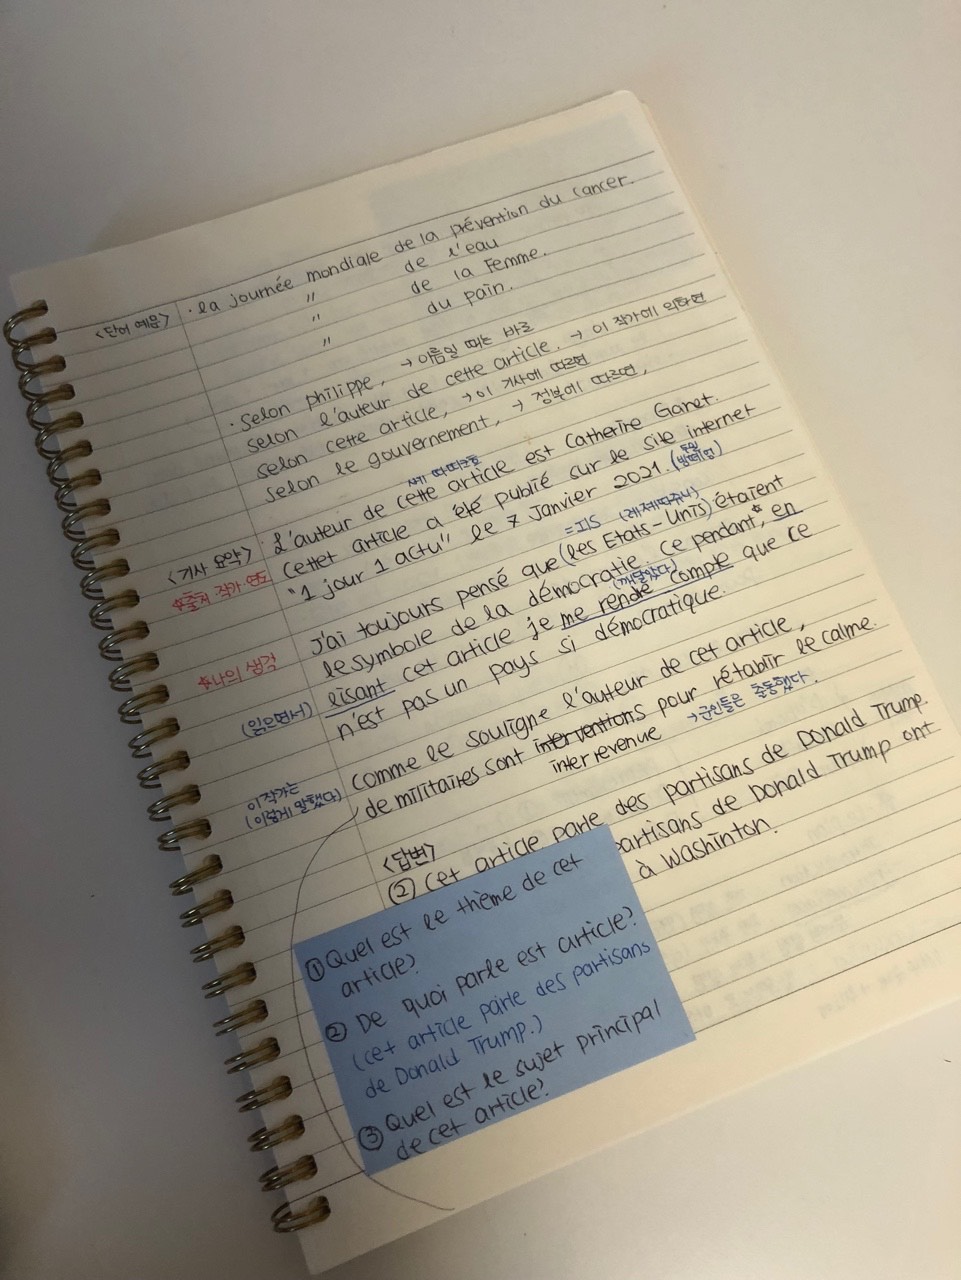 <단어 예문>
· la journée mondiale de la prévention du cancer.
〃 de l'eau
〃 de la Femme.
〃 du pain.
· Selon philippe, → 이름일 때는 바로
selon l'auteur de cette article. → 이 작가에 의하면
selon cette article, → 이 기사에 따르면
selon le gouvernement, → 정부에 따르면,
<기사 요약>
☆출처 작가·연도
L'auteur de cette article est Catherine Ganet.
cettet article a été publié sur le site internet
"1 jour 1 actu" le 7 Janvier 2021.
☆나의 생각
= ILS
J'ai toujours pensé que (les Etats-Unis) étaient
le symbole de la démocratie. ce pendant*, en
(깨달았다)
(읽으면서)
lisant cet article je me rende compte que ce
n'est pas un pays si démocratique.
이 작가는
(이렇게 말했다)
comme le souligne l'auteur de cet article,
de militaires sont interventions pour rétablir le calme.
interrevenue → 군인들은 출동했다.
<답변>
② cet article parle des partisans de Donald Trump.
partisans de Donald Trump ont
à Washinton.
① Quel est le thème de cet
article?
② De quoi parle est article?
(cet article parle des partisans
de Donald Trump.)
③ Quel est le sujet principal
de cet article?